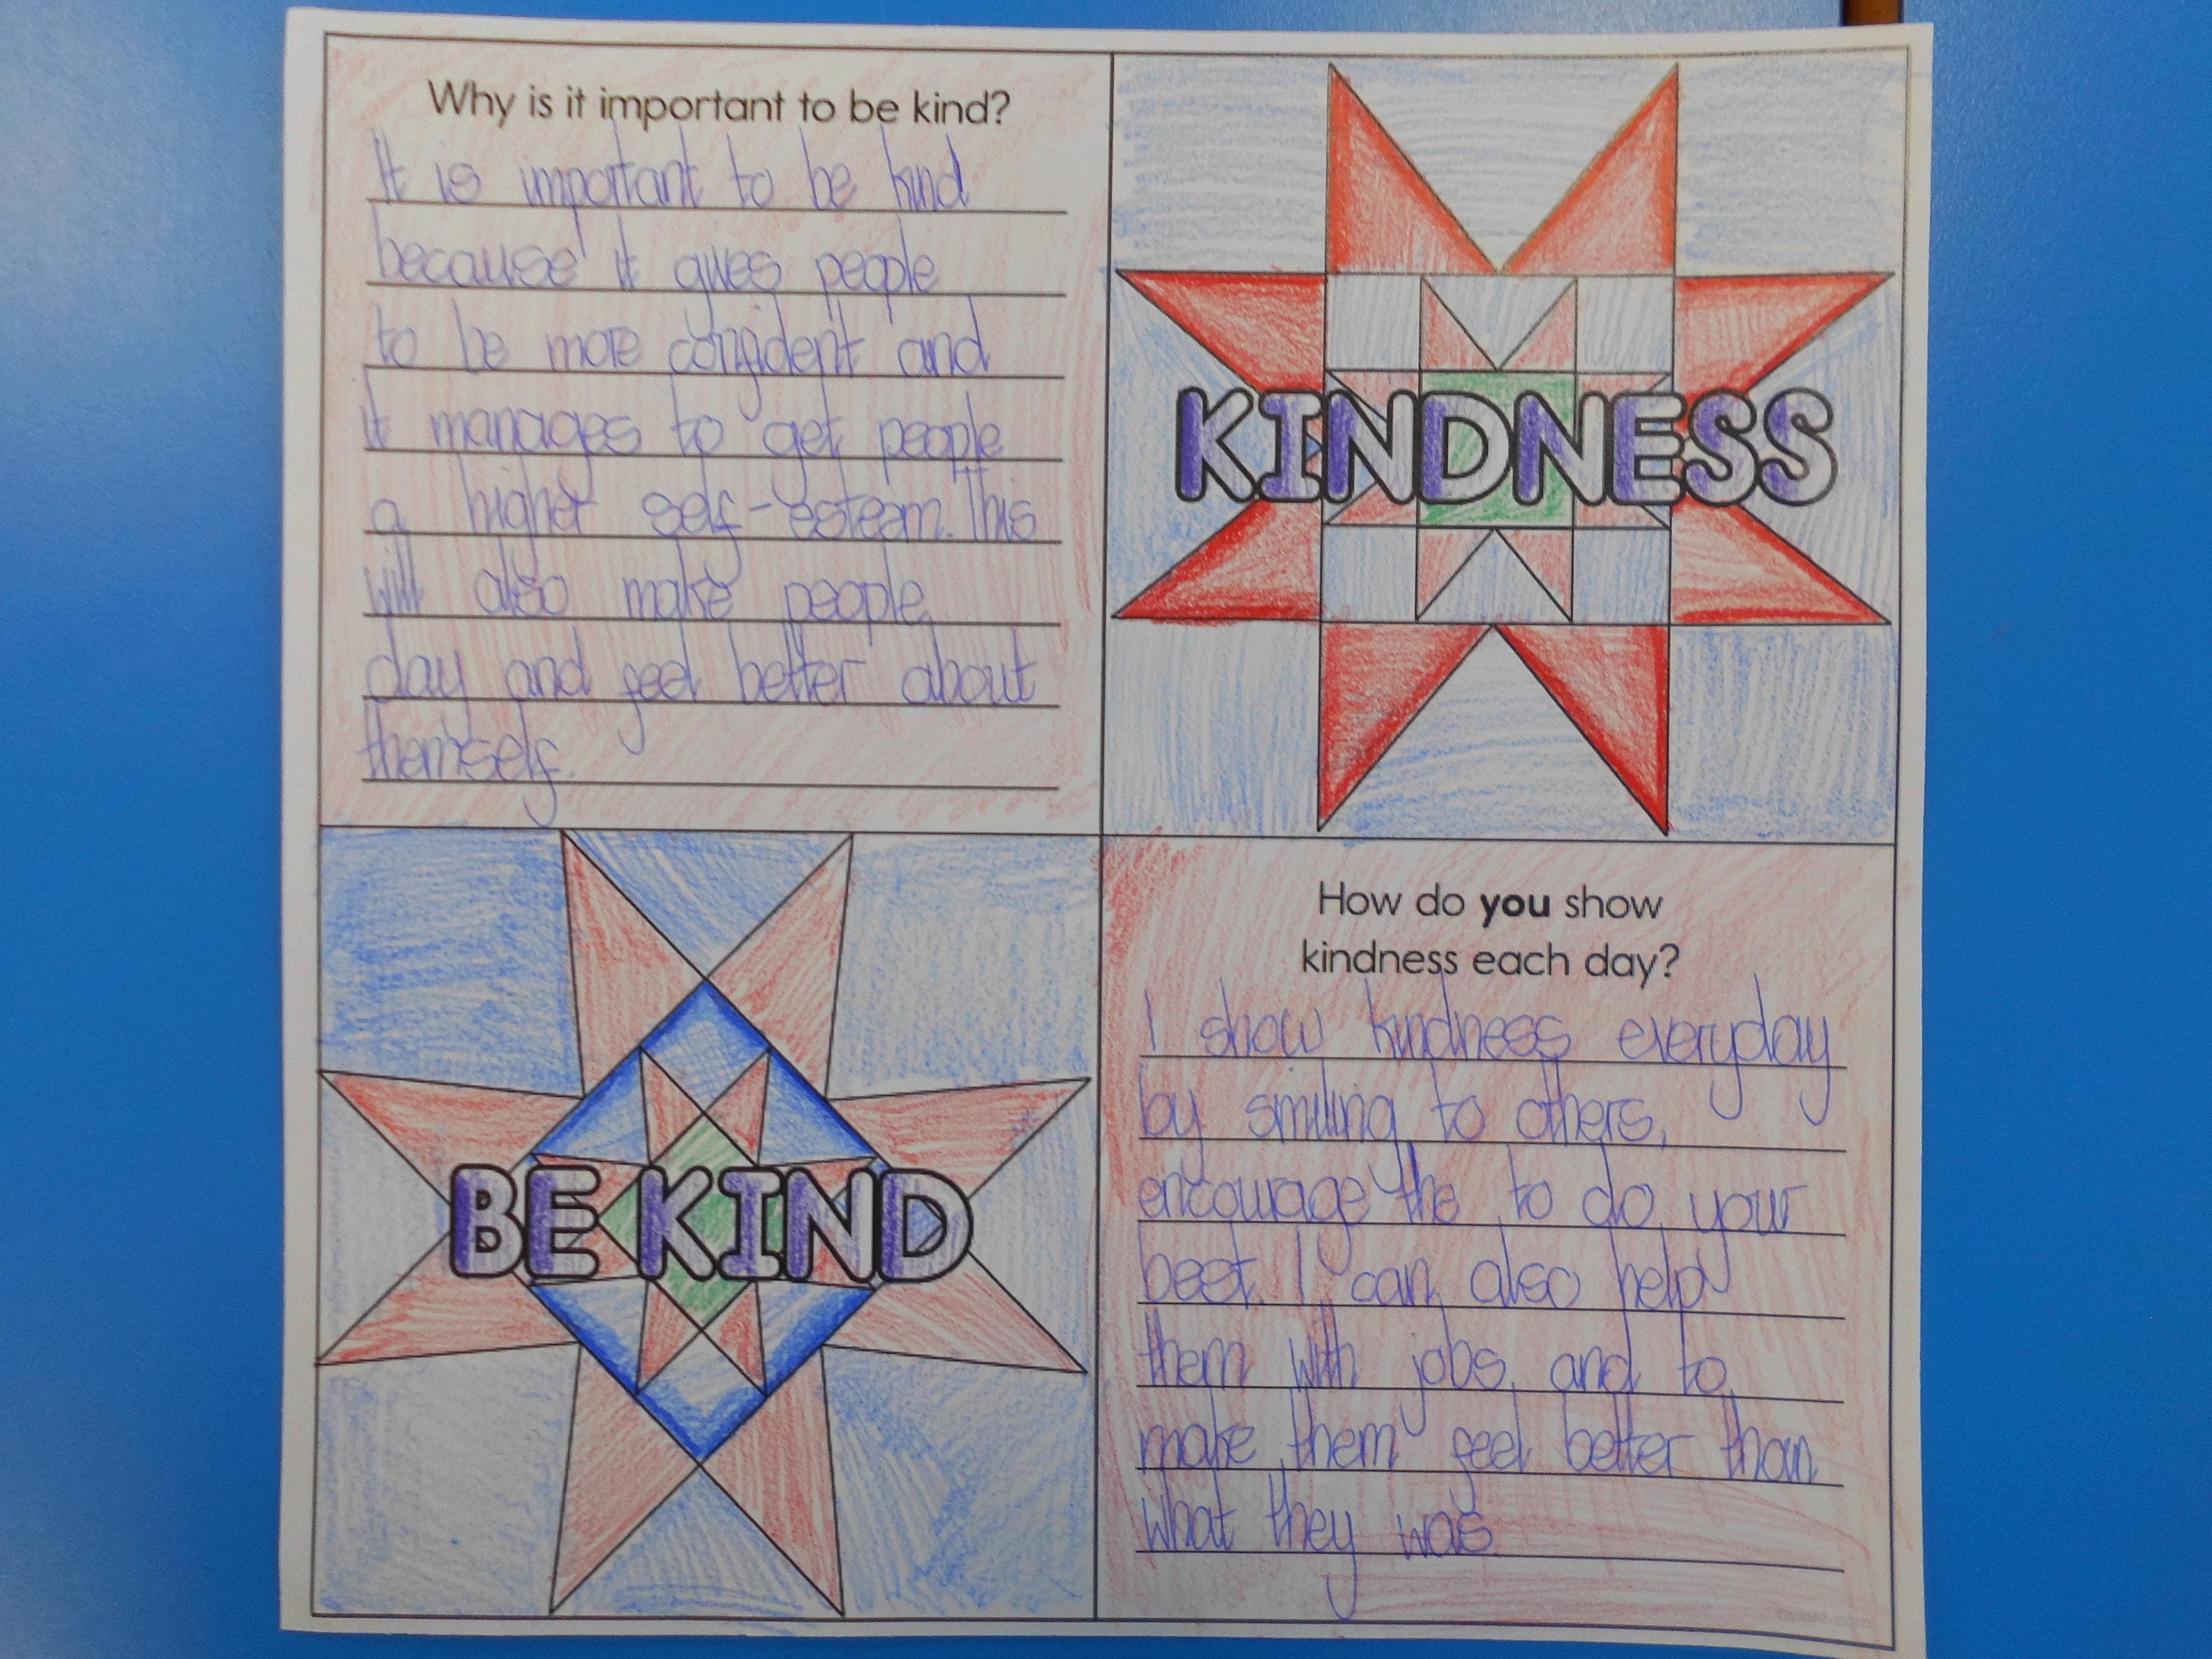 Why is it important to be kind?
It is important to be kind
because it gives people
to be more confident and
it manages to get people
a higher self-esteem. This
will also make people
day and feel better about
themself.
KINDNESS
BE KIND
How do you show
kindness each day?
I show kindness everyday
by smiling to others,
encourage the to do your
best. I can also help
them with jobs and to
make them feel better than
what they was